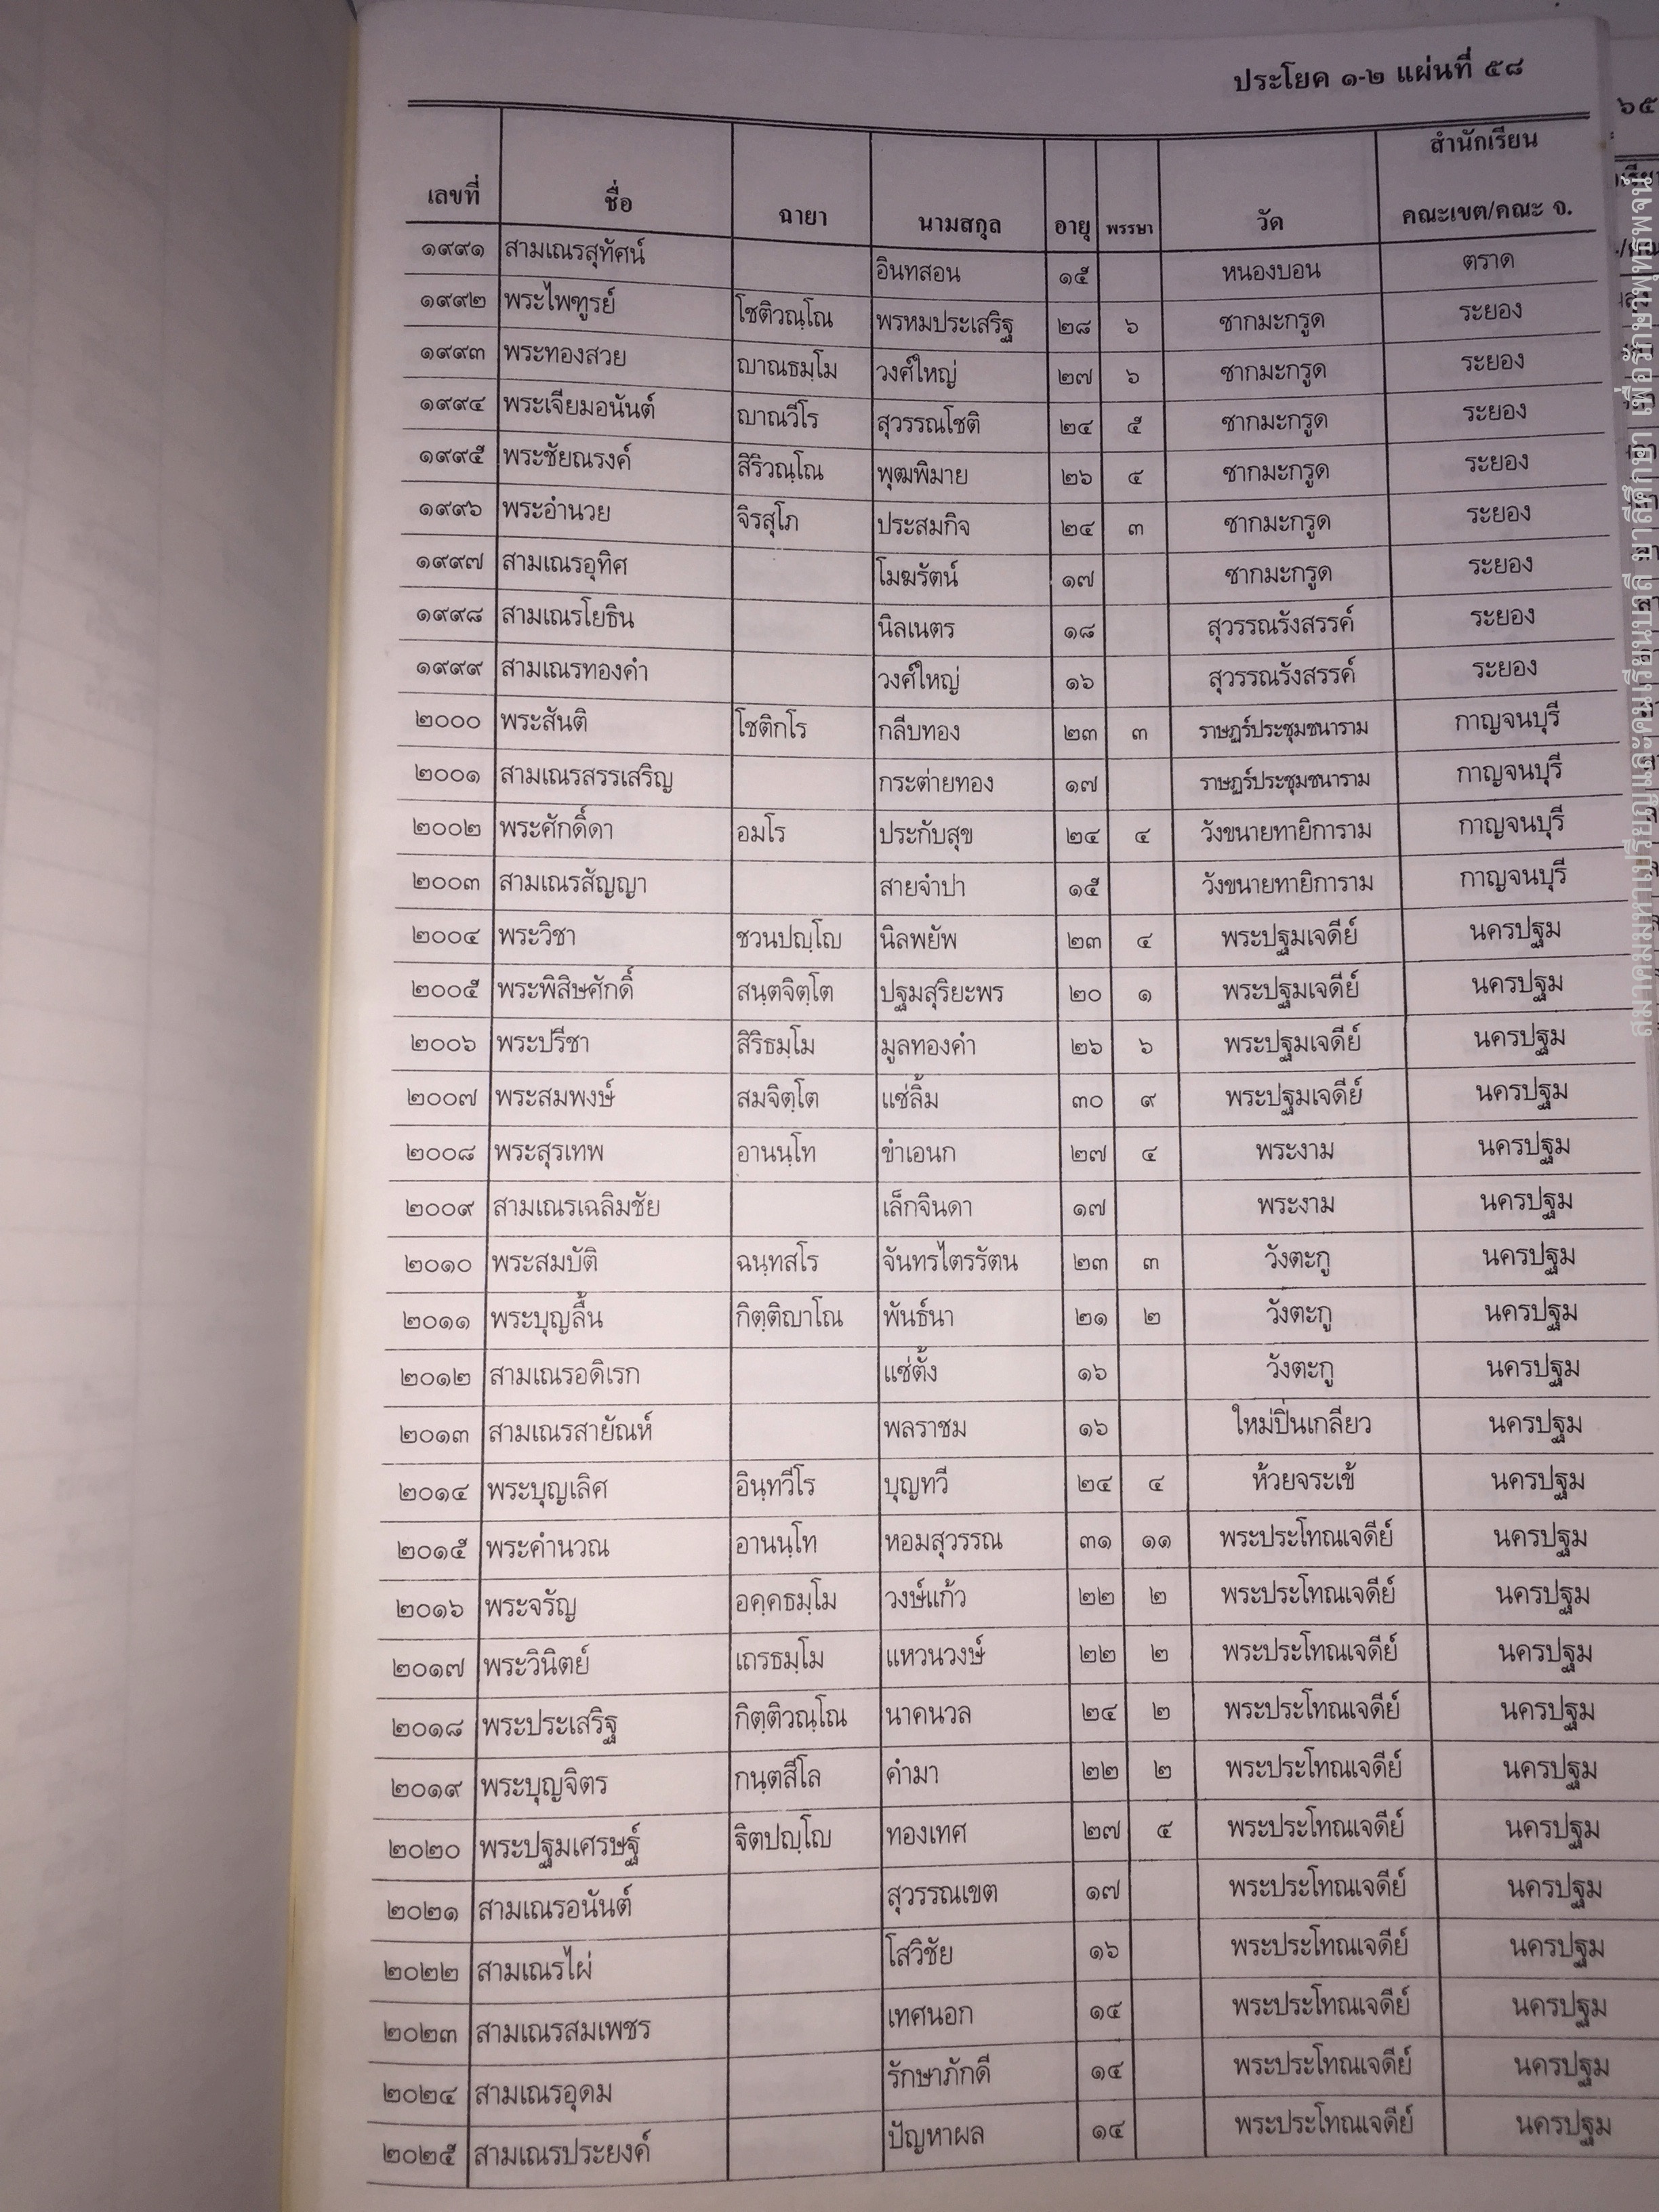 ประโยค ๑-๒ แผ่นที่ ๕๘
เลขที่ ชื่อ ฉายา นามสกุล อายุ พรรษา วัด สำนักเรียน คณะเขต/คณะ จ.
๑๙๙๑ สามเณรสุทัศน์ อินทสอน ๑๕ หนองบอน ตราด
๑๙๙๒ พระไพฑูรย์ โชติวณฺโณ พรหมประเสริฐ ๒๘ ๖ ซากมะกรูด ระยอง
๑๙๙๓ พระทองสวย ญาณธมฺโม วงศ์ใหญ่ ๒๗ ๖ ซากมะกรูด ระยอง
๑๙๙๔ พระเจียมอนันต์ ญาณวีโร สุวรรณโชติ ๒๔ ๕ ซากมะกรูด ระยอง
๑๙๙๕ พระชัยณรงค์ สิริวณฺโณ พุฒพิมาย ๒๖ ๔ ซากมะกรูด ระยอง
๑๙๙๖ พระอำนวย จิรสุโภ ประสมกิจ ๒๔ ๓ ซากมะกรูด ระยอง
๑๙๙๗ สามเณรอุทิศ โมฆรัตน์ ๑๗ ซากมะกรูด ระยอง
๑๙๙๘ สามเณรโยธิน นิลเนตร ๑๘ สุวรรณรังสรรค์ ระยอง
๑๙๙๙ สามเณรทองคำ วงศ์ใหญ่ ๑๖ สุวรรณรังสรรค์ ระยอง
๒๐๐๐ พระสันติ โชติกโร กลีบทอง ๒๓ ๓ ราษฏร์ประชุมชนาราม กาญจนบุรี
๒๐๐๑ สามเณรสรรเสริญ กระต่ายทอง ๑๗ ราษฏร์ประชุมชนาราม กาญจนบุรี
๒๐๐๒ พระศักดิ์ดา อมโร ประกับสุข ๒๔ ๔ วังขนายทายิการาม กาญจนบุรี
๒๐๐๓ สามเณรสัญญา สายจำปา ๑๕ วังขนายทายิการาม กาญจนบุรี
๒๐๐๔ พระวิชา ชวนปญฺโญ นิลพยัพ ๒๓ ๔ พระปฐมเจดีย์ นครปฐม
๒๐๐๕ พระพิสิษศักดิ์ สนฺตจิตฺโต ปฐมสุริยะพร ๒๐ ๑ พระปฐมเจดีย์ นครปฐม
๒๐๐๖ พระปรีชา สิริธมฺโม มูลทองคำ ๒๖ ๖ พระปฐมเจดีย์ นครปฐม
๒๐๐๗ พระสมพงษ์ สมจิตฺโต แซ่ลิ้ม ๓๐ ๙ พระปฐมเจดีย์ นครปฐม
๒๐๐๘ พระสุรเทพ อานนฺโท ขำเอนก ๒๗ ๔ พระงาม นครปฐม
๒๐๐๙ สามเณรเฉลิมชัย เล็กจินดา ๑๗ พระงาม นครปฐม
๒๐๑๐ พระสมบัติ ฉนฺทสโร จันทรไตรรัตน ๒๓ ๓ วังตะกู นครปฐม
๒๐๑๑ พระบุญลื้น กิตฺติญาโณ พันธ์นา ๒๑ ๒ วังตะกู นครปฐม
๒๐๑๒ สามเณรอดิเรก แซ่ตั้ง ๑๖ วังตะกู นครปฐม
๒๐๑๓ สามเณรสายัณห์ พลราชม ๑๖ ใหม่ปิ่นเกลียว นครปฐม
๒๐๑๔ พระบุญเลิศ อินฺทวีโร บุญทวี ๒๔ ๔ ห้วยจระเข้ นครปฐม
๒๐๑๕ พระคำนวณ อานนฺโท หอมสุวรรณ ๓๑ ๑๑ พระประโทณเจดีย์ นครปฐม
๒๐๑๖ พระจรัญ อคฺคธมฺโม วงษ์แก้ว ๒๒ ๒ พระประโทณเจดีย์ นครปฐม
๒๐๑๗ พระวินิตย์ เถรธมฺโม แหวนวงษ์ ๒๒ ๒ พระประโทณเจดีย์ นครปฐม
๒๐๑๘ พระประเสริฐ กิตฺติวณฺโณ นาคนวล ๒๔ ๒ พระประโทณเจดีย์ นครปฐม
๒๐๑๙ พระบุญจิตร กนฺตสีโล คำมา ๒๒ ๒ พระประโทณเจดีย์ นครปฐม
๒๐๒๐ พระปฐมเศรษฐ์ ฐิตปญฺโญ ทองเทศ ๒๗ ๔ พระประโทณเจดีย์ นครปฐม
๒๐๒๑ สามเณรอนันต์ สุวรรณเขต ๑๗ พระประโทณเจดีย์ นครปฐม
๒๐๒๒ สามเณรไผ่ โสวิชัย ๑๖ พระประโทณเจดีย์ นครปฐม
๒๐๒๓ สามเณรสมเพชร เทศนอก ๑๔ พระประโทณเจดีย์ นครปฐม
๒๐๒๔ สามเณรอุดม รักษาภักดี ๑๔ พระประโทณเจดีย์ นครปฐม
๒๐๒๕ สามเณรประยงค์ ปัญหาผล ๑๔ พระประโทณเจดีย์ นครปฐม
สมาคมมหาเปรียญและคนเรียนบาลี มาลีศึกษา เพื่อรักษาพุทธพจน์